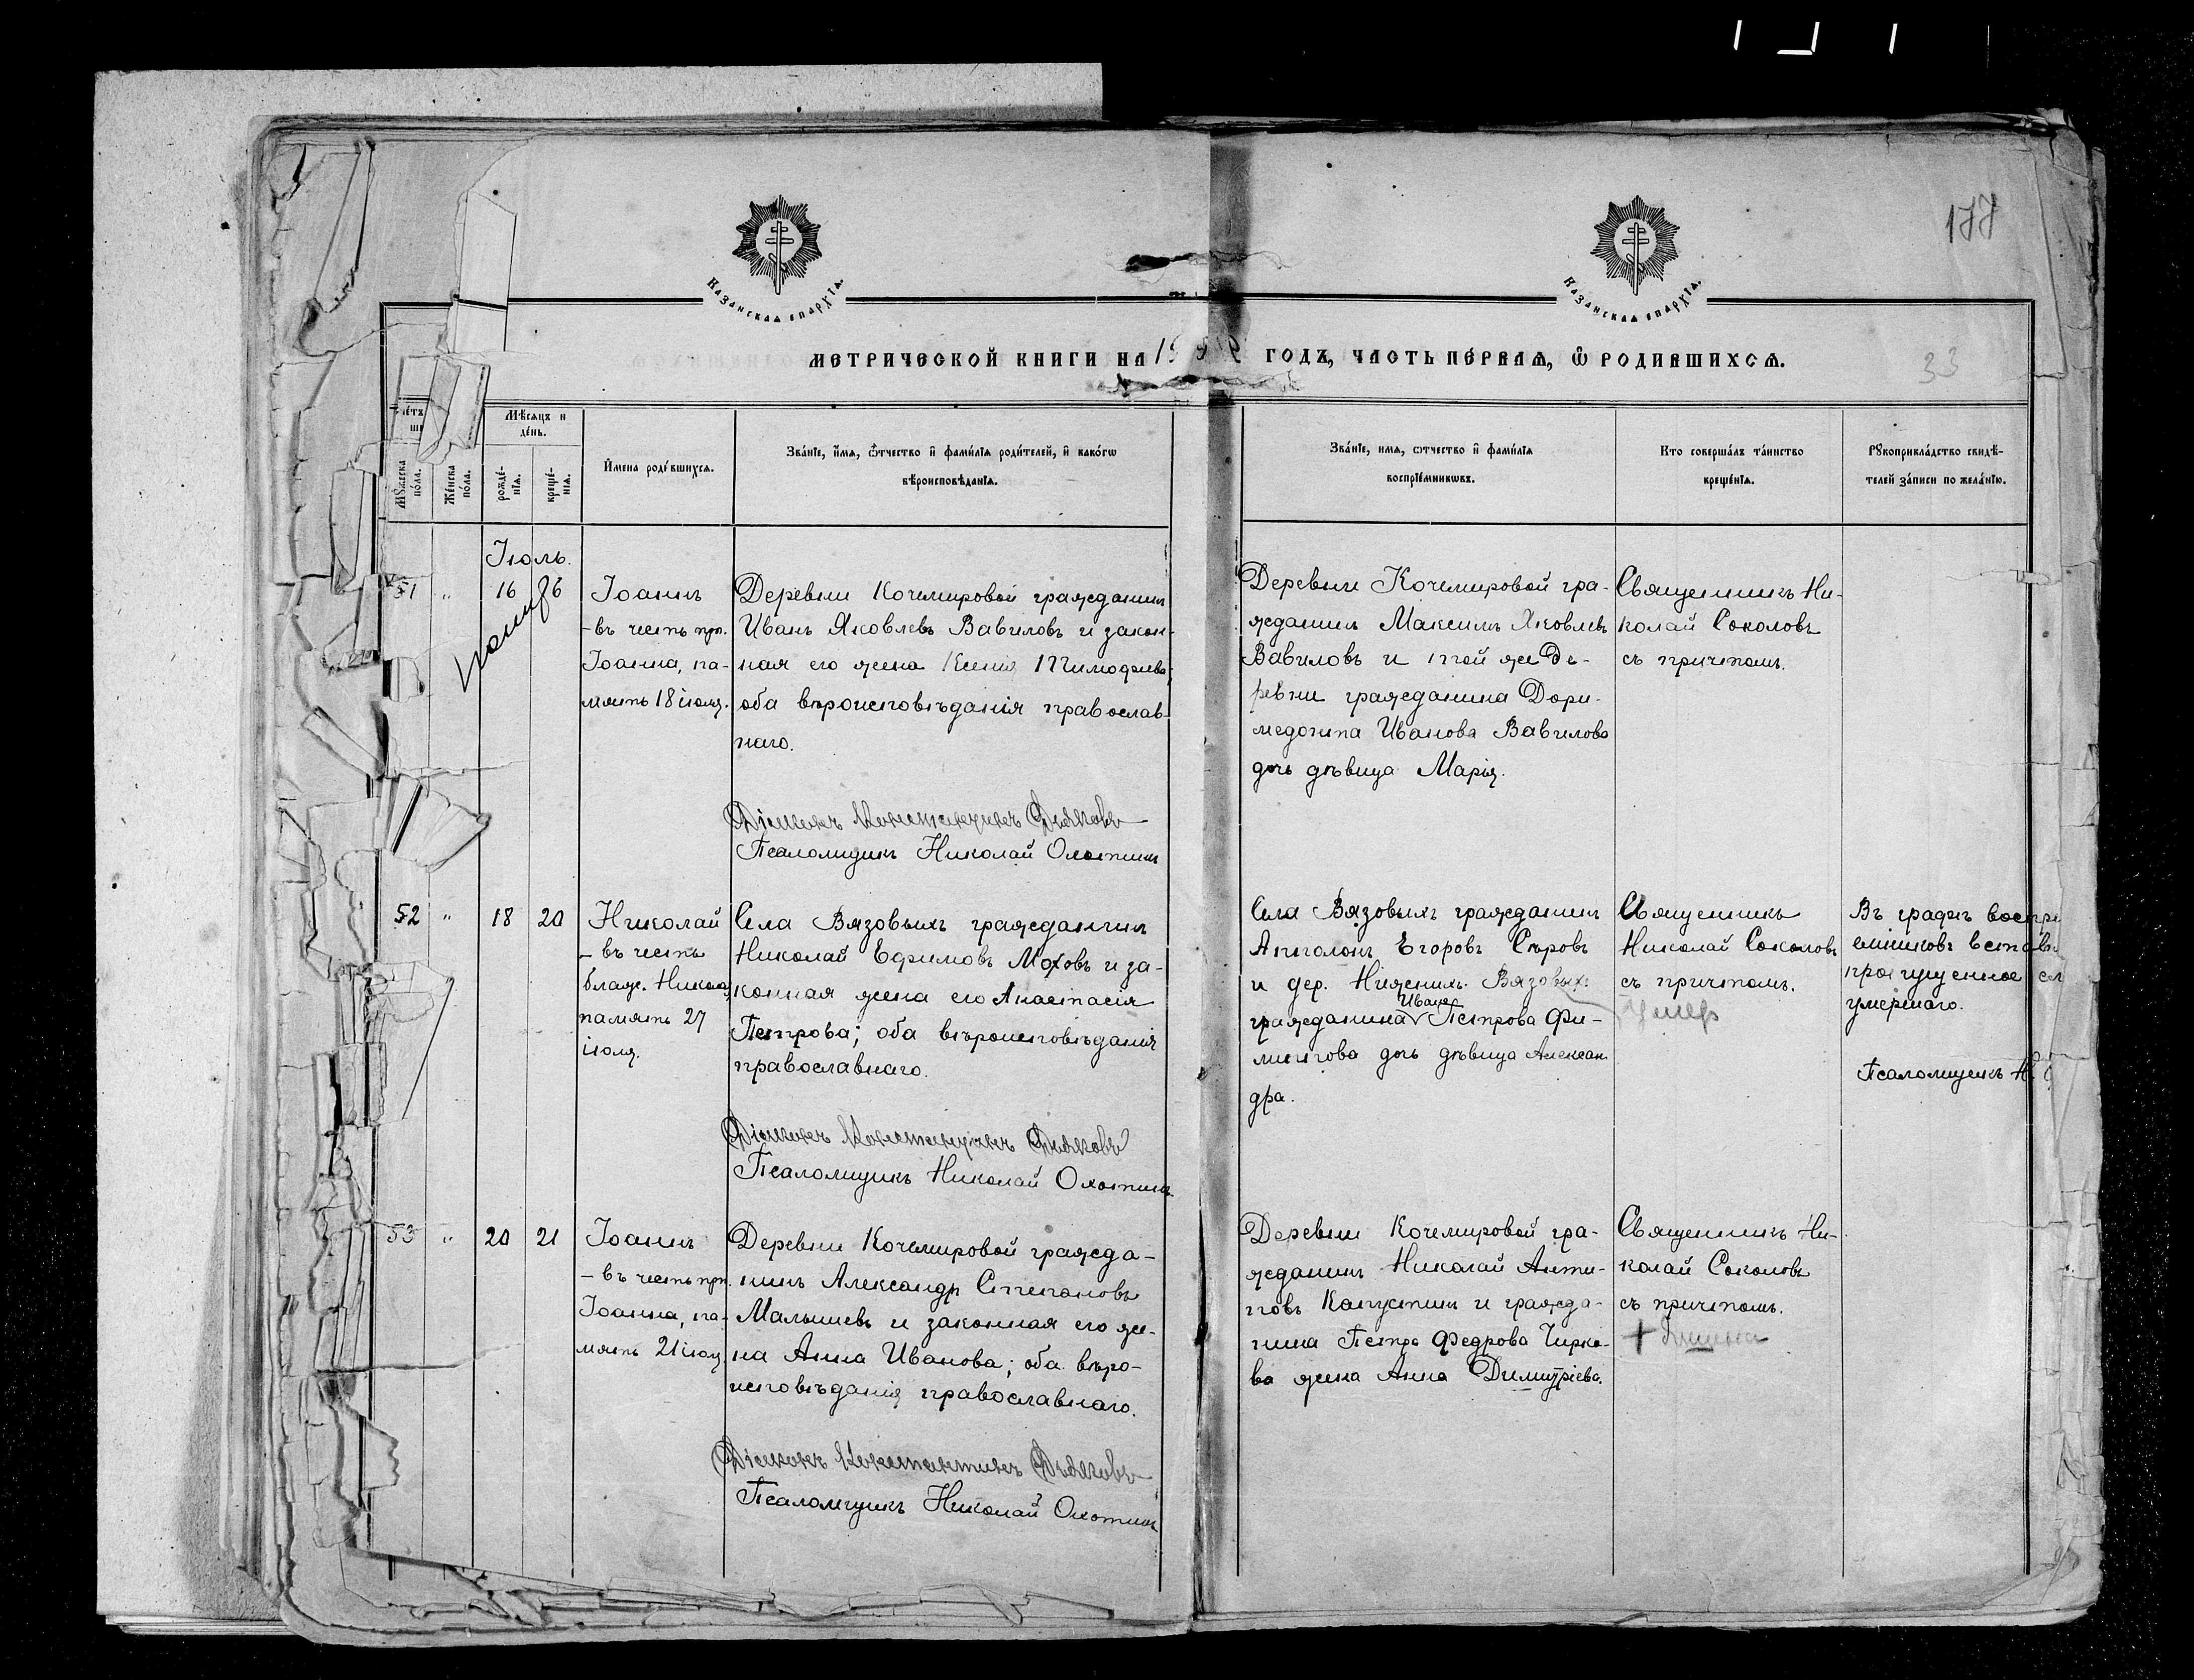 177
Казанская епархїѧ.
Казанская епархїѧ.
метрической книги на 19
годъ, часть пе́рваѧ, ѡ҆ родившихсѧ.
33
Мѣ́сѧцъ и
де́нь.
Му́жеска
по́ла.
Же́нска
по́ла.
рожде́-
нїѧ.
креще́-
нїѧ.
И҆мена роди́вшихсѧ.
Зва́нїе, и҆́мѧ, ѻ҆́тчество и҆ фами́лїѧ роди́телей, и҆ како́гѡ
вѣроисповѣ́данїѧ.
Зва́нїе, имѧ, ѻтчество и҆ фами́лїѧ
воспрїе́мникѡвъ.
Кто соверша́лъ та́инство
креще́нїѧ.
Рꙋкоприкла́дство свидѣ́-
телей за́писи по жела́нїю.
Іюль.
51 " 16 26
Іоаннъ
– въ честь прп.
Іоанна, па-
мять 18 іюля.
Деревни Кочемировой гражданинъ
Иванъ Яковлевъ Вавиловъ и закон-
ная его жена Ксенія Тимофеева;
оба вѣроисповѣданія православ-
наго.
Діаконъ Константинъ Дьяковъ
Псаломщикъ Николай Охотинъ
Деревни Кочемировой гра-
жданинъ Максимъ Яковлевъ
Вавиловъ и той же де-
ревни гражданина Дори-
медонта Иванова Вавилова
дочь дѣвица Марія.
Священникъ Ни-
колай Соколовъ
съ причтомъ.
52 " 18 20
Николай
– въ честь
блаж. Никол.
память 27
іюля.
Села Вязовыхъ гражданинъ
Николай Ефимовъ Моховъ и за-
конная жена его Анастасія
Петрова; оба вѣроисповѣданія
православнаго.
Діаконъ Константинъ Дьяковъ
Псаломщикъ Николай Охотинъ
Села Вязовыхъ гражданинъ
Апполонъ Егоровъ Сѣровъ
и дер. Нижнихъ Вязовыхъ
Ивана
гражданина Петрова Фи-
липпова дочь дѣвица Алексан-
дра.
Священникъ
Николай Соколовъ
съ причтомъ.
Умер
Въ графѣ воспрі
емниковъ встав
пропущенное сл
умершаго.
Псаломщикъ Н.
53 " 20 21
Іоаннъ
– въ честь прп.
Іоанна, па-
мять 21 іюл.
Деревни Кочемировой гражда-
нинъ Александръ Степановъ
Малышевъ и законная его же-
на Анна Иванова; оба вѣро-
исповѣданія православнаго.
Діаконъ Константинъ Дьяковъ
Псаломщикъ Николай Охотинъ
Деревни Кочемировой гра-
жданинъ Николай Анти-
повъ Капустинъ и гражда-
нина Петръ Федрова Чирко-
ва жена Анна Димитріева.
Священникъ Ни-
колай Соколовъ
съ причтомъ.